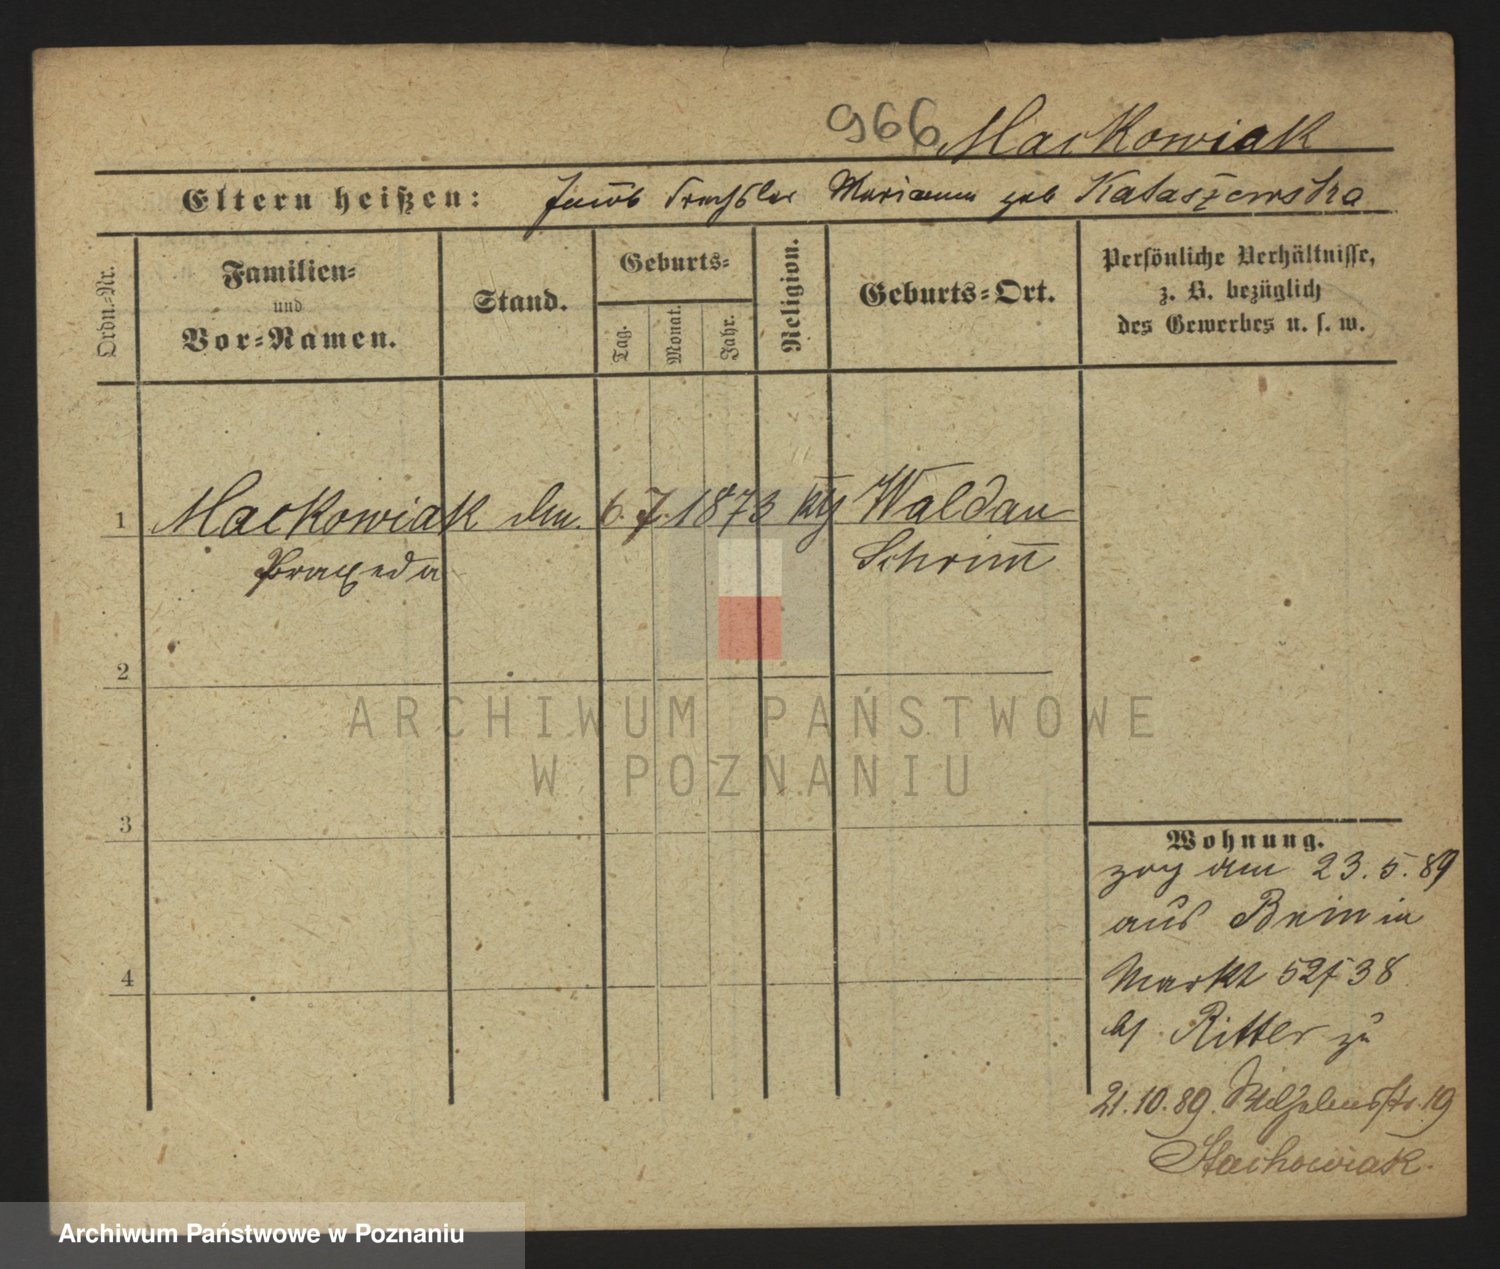 966 Mackowiak
Eltern heißen: Jacob Marianna geb Kataszewska
Ordn.-Nr.
Familien-
und
Vor-Namen.
Stand.
Geburts-
Tag.
Monat.
Jahr.
Religion.
Geburts-Ort.
Persönliche Verhältnisse,
z. B. bezüglich
des Gewerbes u. s. w.
1 Mackowiak 6. 7. 1873 kth Waldau
Praxeda Schrim̅
2
3
4
Wohnung.
zog am 23. 5. 89
aus Bnin in
Markt 52/38
bei Ritter zu
21. 10. 89. Wilhelmstr. 19
Stachowiak.
ARCHIWUM PAŃSTWOWE
W POZNANIU
Archiwum Państwowe w Poznaniu